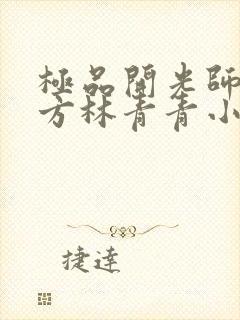 極品開光師
方林青青小
捷達